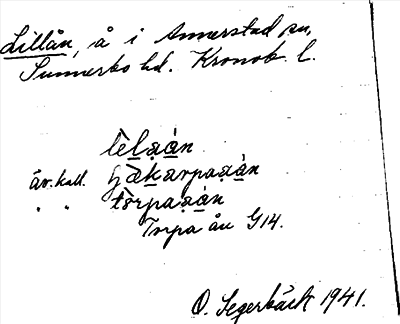 Lillån, å i Annerstad sn,
Sunnerbo hd. Kronob. l.
lèl̠a̠á̠n
äv. kall. hǽk̠arpaa̠á̠n
" " tòrpaa̠á̠n
Torpa ån G14.
O. Segerbäck 1941.